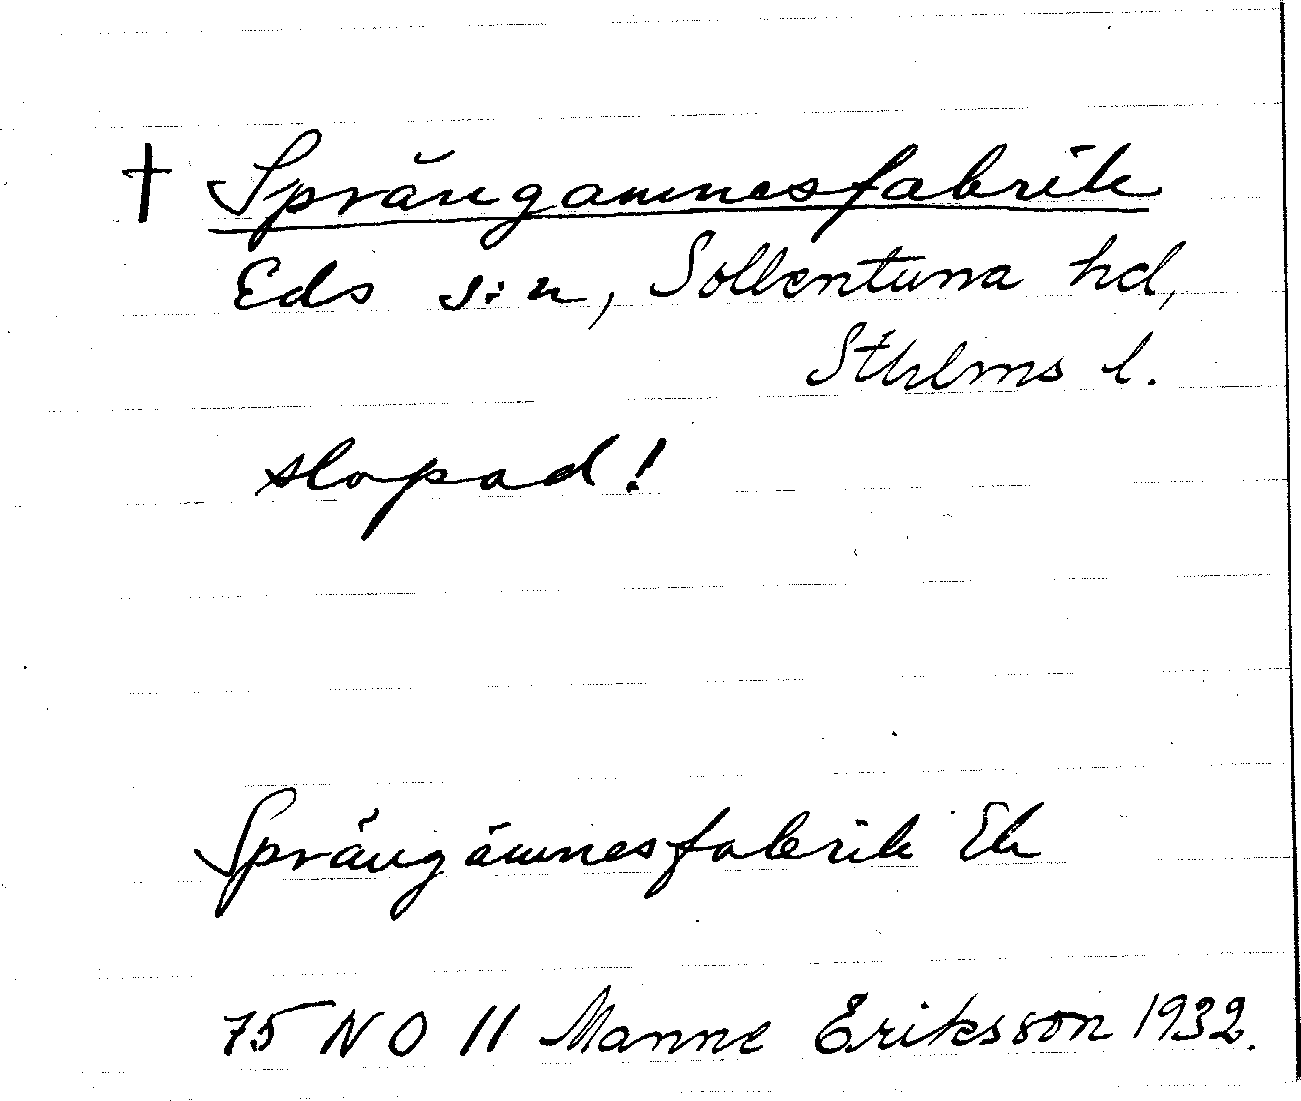 † Sprängämnesfabrik
Eds s:n, Sollentuna hd,
Sthlms l.
slopad!
Sprängämnesfabrik Ek
75 NO 11 Manne Eriksson 1932.